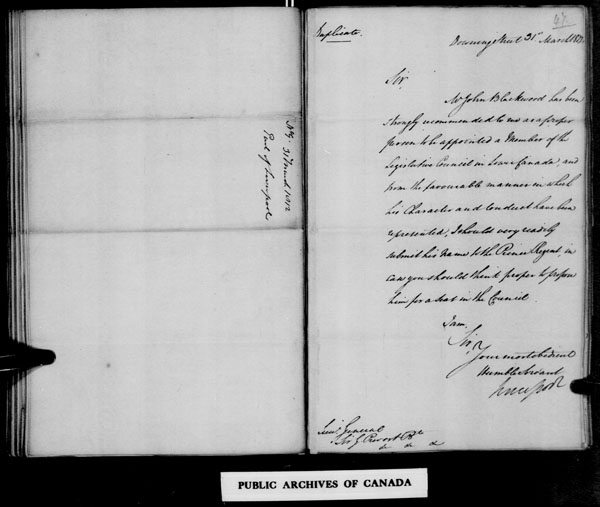 Duplicate.
47
Downing Street 31st March 1812
Sir,
Mr John Blackwood has been
strongly recommended to me as a proper
person to be appointed a Member of the
Legislative Council in Lower Canada, and
from the favourable manner in which
his Character and Conduct have been
represented, I should very readily
submit his Name to the Prince Regent, in
case you should think proper to propose
him for a Seat in the Council.
I am,
Sir,
Your most obedient
Humble Servant
Liverpool
Lieut. General
Sir G. Prevost Bt.
&c &c &c
31 March 1812
Earl of Liverpool
PUBLIC ARCHIVES OF CANADA